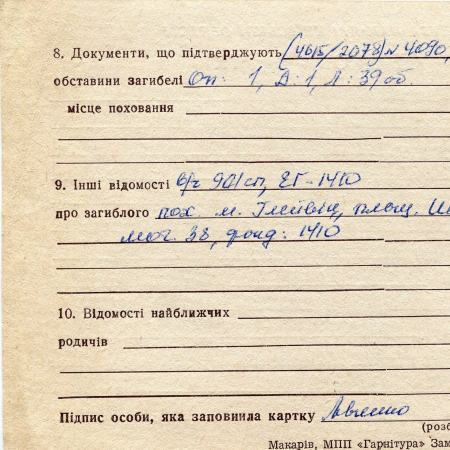 8. Документи, що підтверджують (4615/2078) № 4090,
обставини загибелі Оп: 1, Д: 1, Л: 39 об.
місце поховання
9. Інші відомості в/ч 901сп, ЕГ-1410
про загиблого пох. м. Глейвіц, площ. Ш
мог. 38, фонд: 1410
10. Відомості найближчих
родичів
Підпис особи, яка заповнила картку
(розб
Макарів, МПП «Гарнітура» Зам